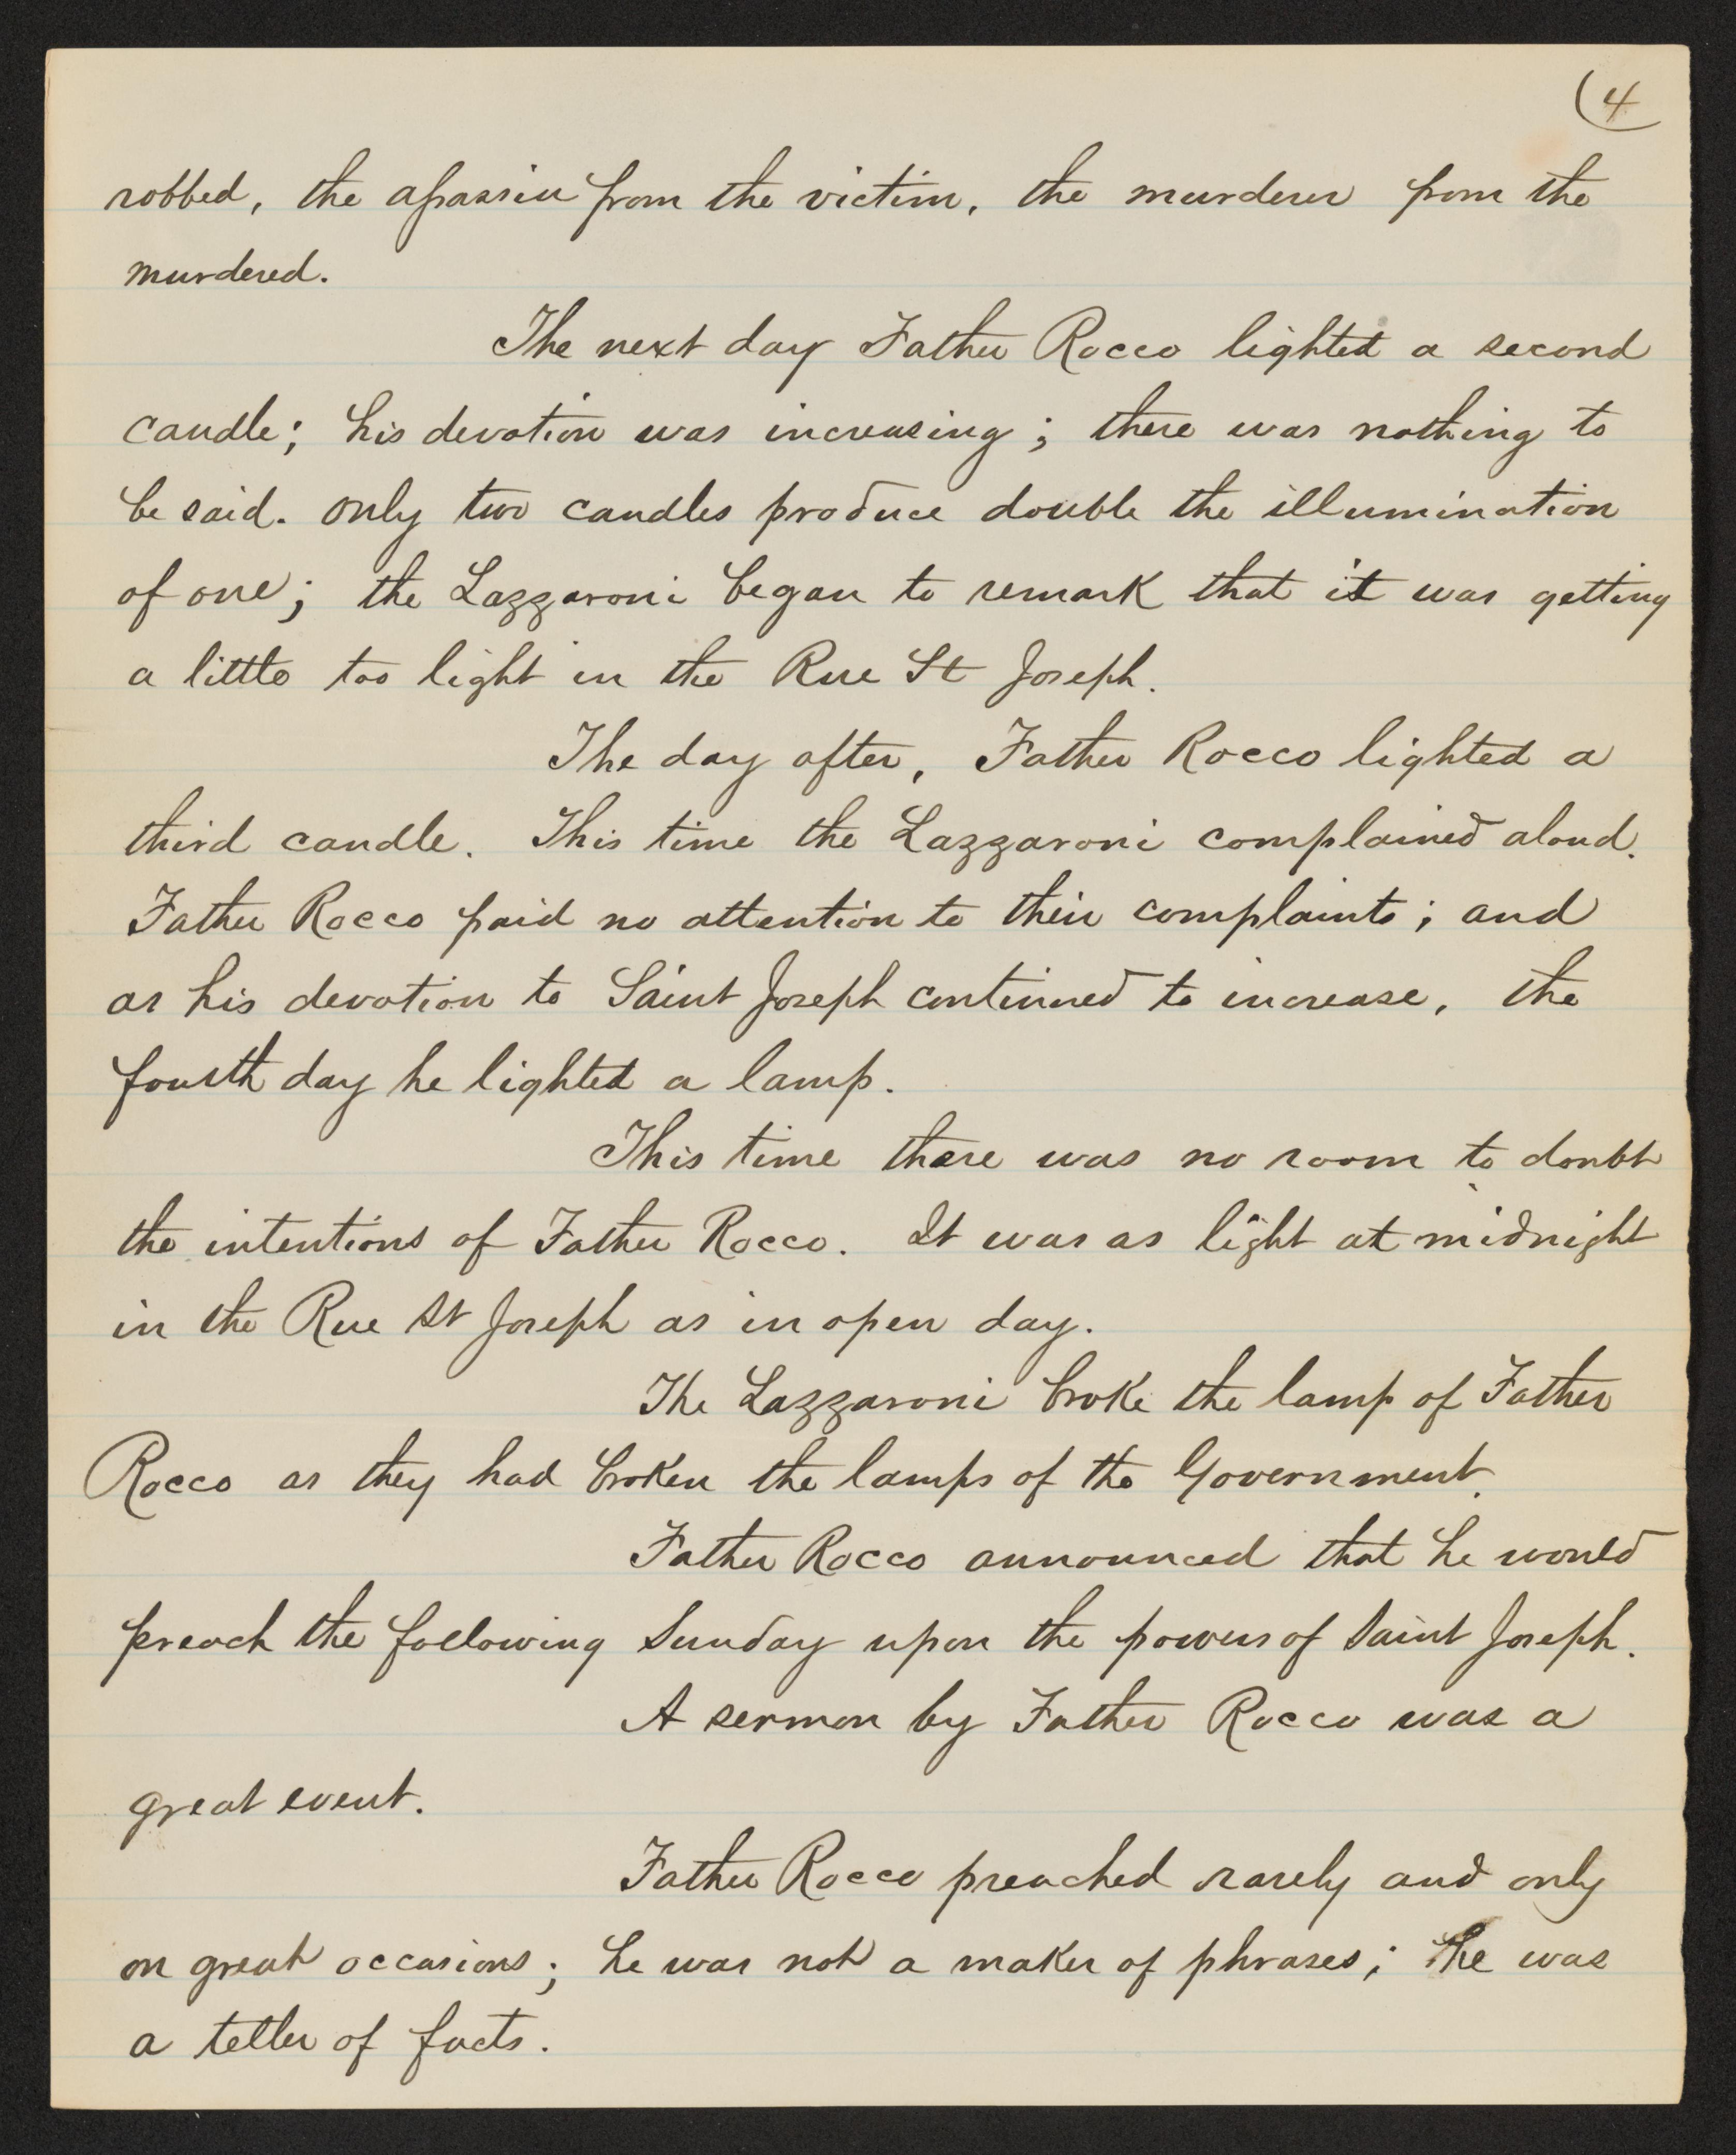 (4
robbed, the apassin from the victim, the murderer from the
murdered.
The next day Father Rocco lighted a second
candle; his devotion was increasing; there was nothing to
be said. only two candles produce double the illumination
of one; the Lazzaroni began to remark that it was getting
a little too light in the Rue St Joseph.
The day after, Father Rocco lighted a
third candle. This time the Lazzaroni complained aloud.
Father Rocco paid no attention to their complaints; and
as his devotion to Saint Joseph continued to increase, the
fourth day he lighted a lamp.
This time there was no room to doubt
the intentions of Father Rocco. It was as light at midnight
in the Rue St Joseph as in open day.
The Lazzaroni broke the lamp of Father
Rocco as they had broken the lamps of the Government.
Father Rocco announced that he would
preach the following Sunday upon the power of Saint Joseph.
A sermon by Father Rocco was a
great event.
Father Rocco preached rarely and only
on great occasions; he was not a maker of phrases; he was
a teller of facts.